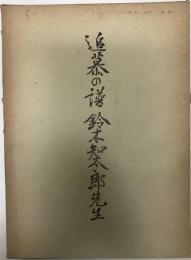 追慕の譜 鈴木知太郎先生